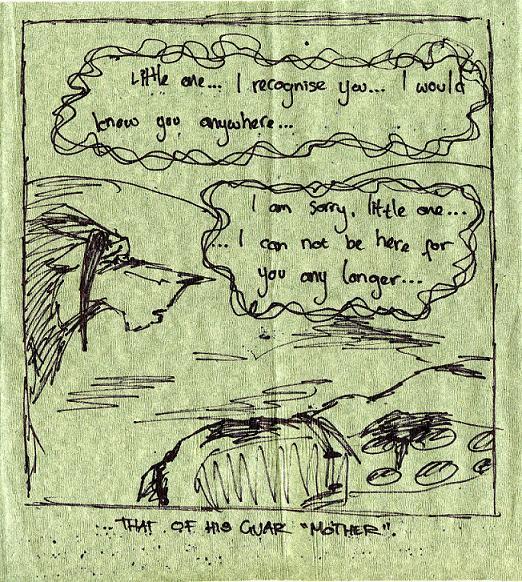 Little one... I recognise you... I would
know you anywhere...
I am sorry, little one...
... I can not be here for
you any longer...
...THAT OF HIS GUAR "MOTHER".